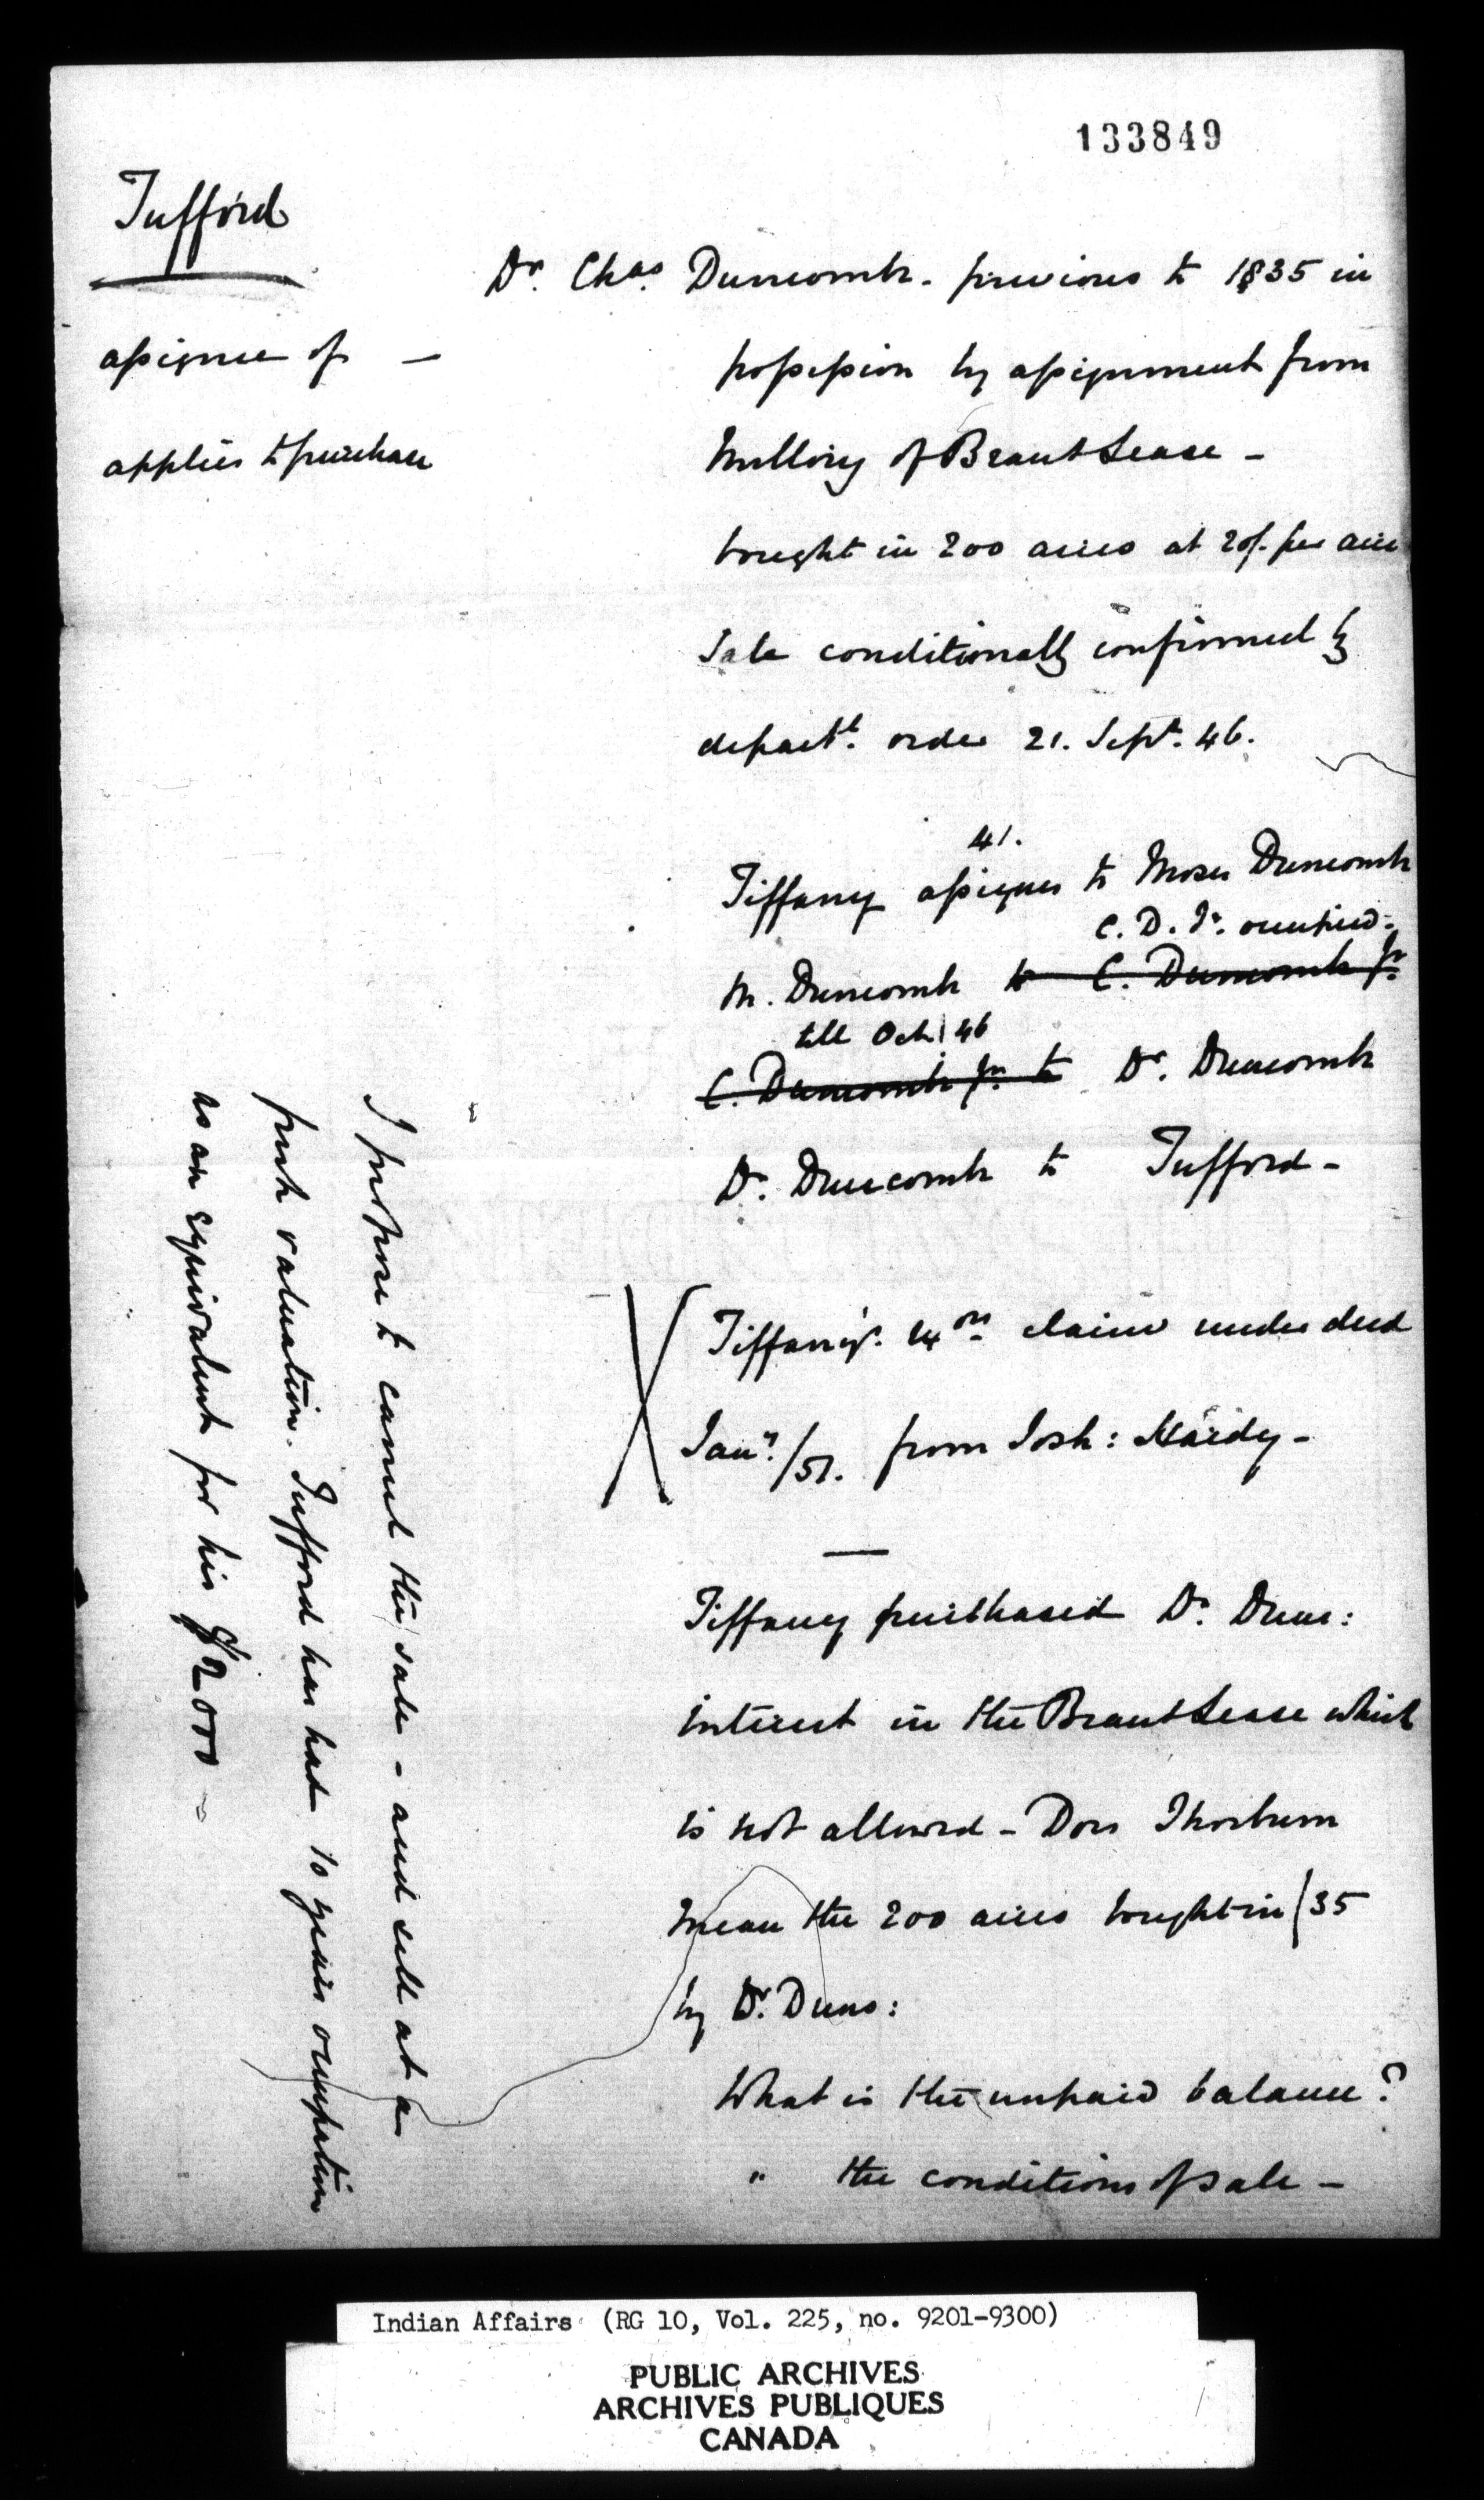 133849
Tufford
assignee of —
applies to purchase
Dr. Chas. Duncomb - previous to 1835 in
possession by assignment from
Mallory of Brant Lease -
bought in 200 acres at 20/- per acre
Sale conditionally confirmed by
depart.t order 21. Sept. 46.
41.
Tiffany assignes to Moses Duncomb
C. D. Jr. occupied -
M. Duncomb to C. Duncomb Jr.
till Oct. 46
C. Duncomb Jr. to Dr. Duncomb
Dr. Duncomb to Tufford -
Tiffany's claim under deed
Jany/51. from Josh: Hardy -
Tiffany purchased Dr. Dunc:
interest in the Brant Lease which
is not allowed - Does Thorburn
mean the 200 acres bought in /35
by Dr. Dunc:
What is the unpaid balance?
" the conditions of sale -
I propose to cancel the sale - and sell at a
fresh valuation. Tufford has had 10 years occupation
as an equivalent for his $2000 -
Indian Affairs (RG 10, Vol. 225, no. 9201-9300)
PUBLIC ARCHIVES
ARCHIVES PUBLIQUES
CANADA